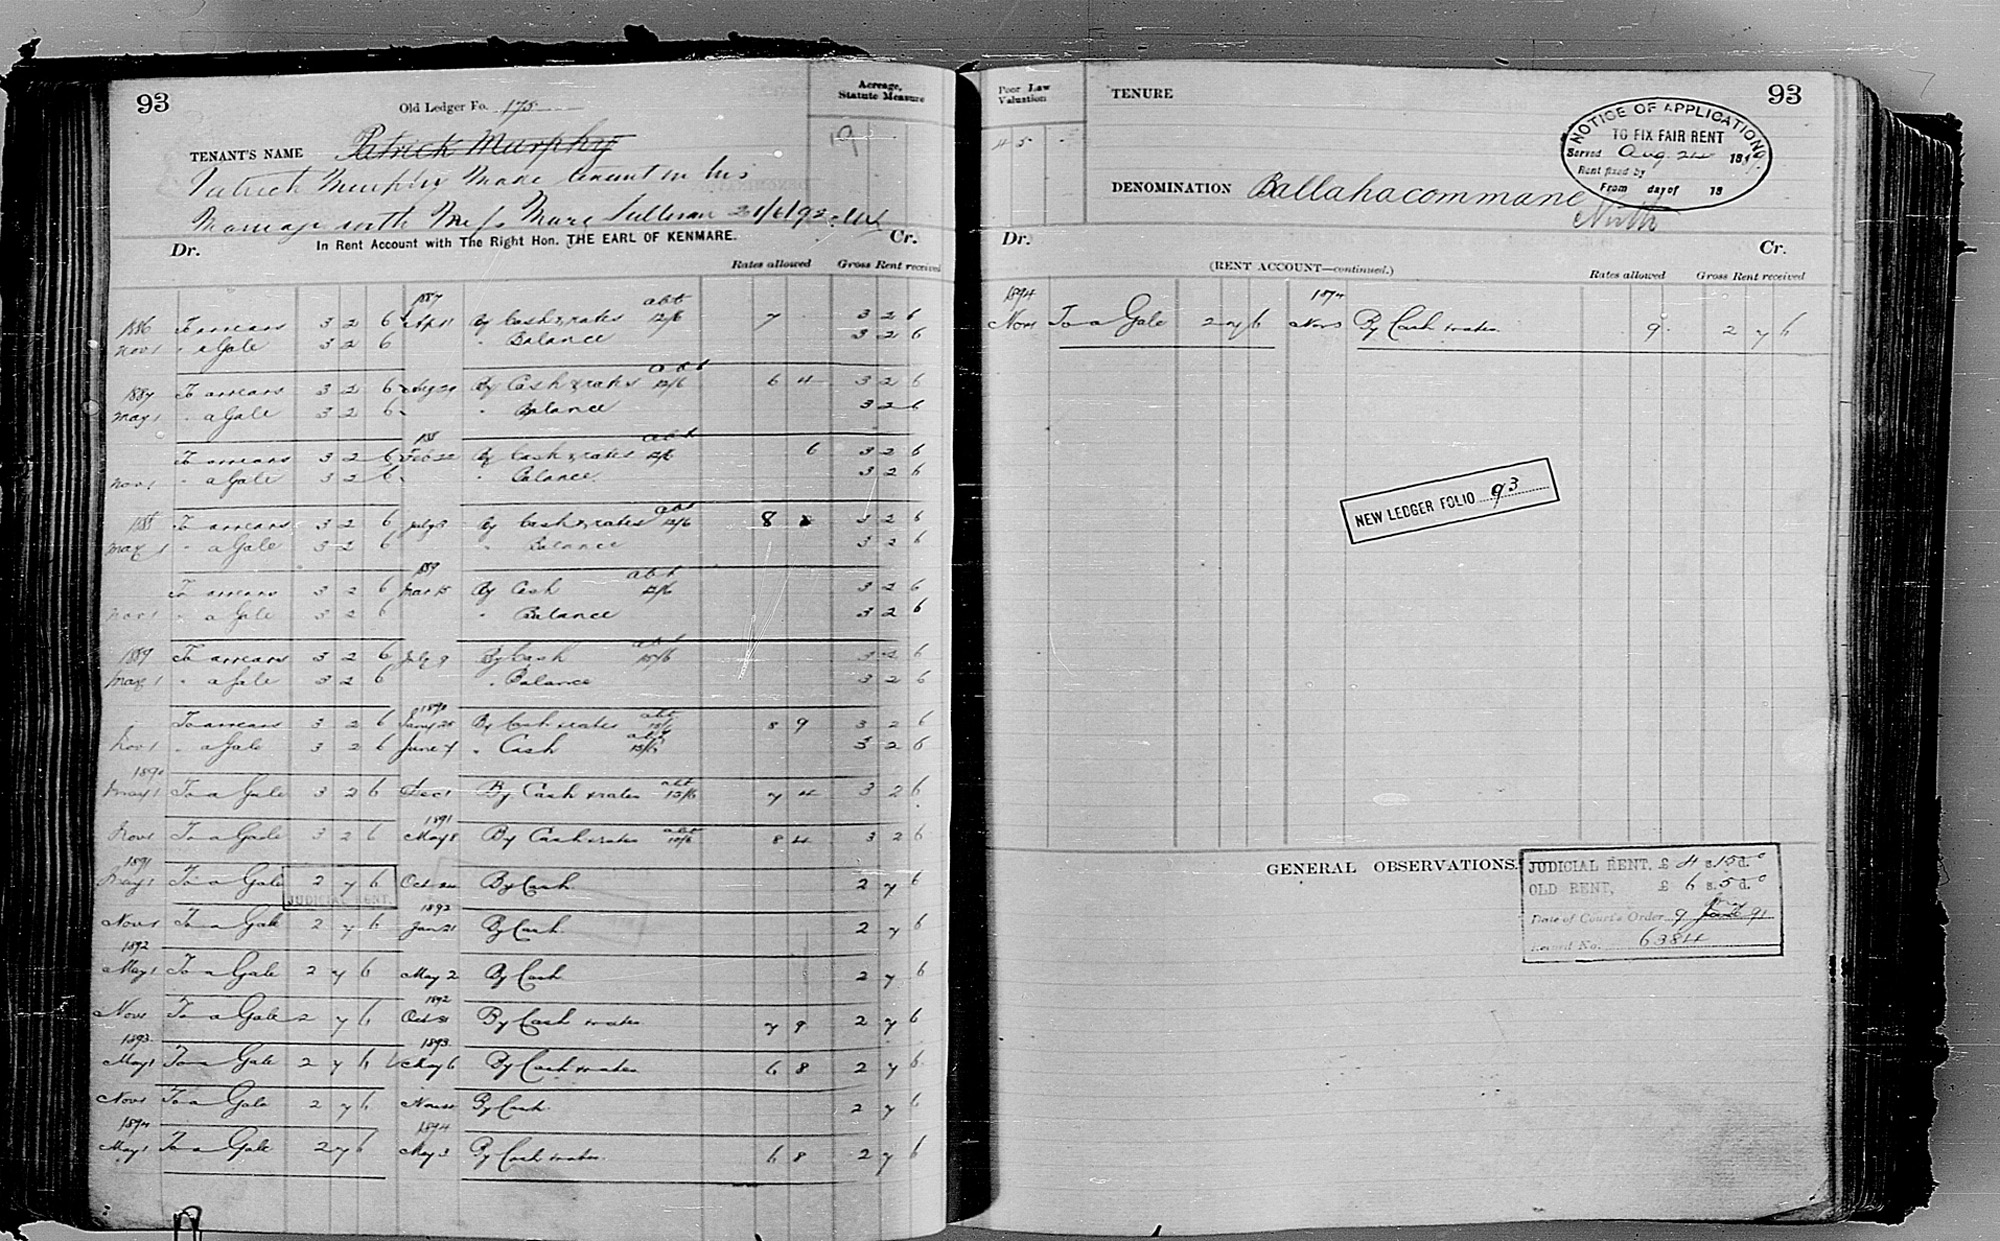 93
Old Ledger Fo. 175
Acreage,
Statute Measure
TENANT'S NAME Patrick Murphy
19
Patrick Murphy made tenant on his
Marriage with Miss Mary Sullivan 21/6/92.
In Rent Account with The Right Hon. THE EARL OF KENMARE.
Dr. Cr.
Rates allowed Gross Rent received
1887 abt
1886 To arrears 3 2 6 Apl By Cash & rates 12/6 7 3 2 6
Nov 1 " a Gale 3 2 6 " Balance 3 2 6
abt
1887 To arrears 3 2 6 Aug 29 By Cash & rates 12/6 6 4 3 2 6
May 1 " a Gale 3 2 6 " Balance 3 2 6
188 abt
To arrears 3 2 6 Feb 22 By Cash & rates 12/6 6 3 2 6
Nov 1 " a Gale 3 2 6 " Balance 3 2 6
abt
188 To arrears 3 2 6 July By Cash & rates 12/6 8 3 2 6
May 1 " a Gale 3 2 6 " Balance 3 2 6
1889 abt
To arrears 3 2 6 Mar 15 By Cash 12/6 3 2 6
Nov 1 " a Gale 3 2 6 " Balance 3 2 6
abt
1889 To arrears 3 2 6 July 9 By Cash 15/6 3 2 6
May 1 " a Gale 3 2 6 " Balance 3 2 6
1890 abt
To arrears 3 2 6 Jany 25 By Cash & rates 15/6 8 9 3 2 6
abt
Nov 1 " a Gale 3 2 6 June 7 " Cash 15/6 3 2 6
1890 abt
May 1 To a Gale 3 2 6 Dec 1 By Cash & rates 15/6 7 4 3 2 6
1891 abt
Nov 1 To a Gale 3 2 6 May 8 By Cash & rates 15/6 8 4 3 2 6
1891
May 1 To a Gale 2 7 6 Oct 24 By Cash 2 7 6
JUDICIAL RENT.
1892
Nov 1 To a Gale 2 7 6 Jan 21 By Cash 2 7 6
1892
May 1 To a Gale 2 7 6 May 2 By Cash 2 7 6
1892
Nov 1 To a Gale 2 7 6 Oct 31 By Cash & rates 7 9 2 7 6
1893 1893
May 1 To a Gale 2 7 6 May 6 By Cash & rates 6 8 2 7 6
Nov 1 To a Gale 2 7 6 Nov By Cash 2 7 6
1894 1894
May 1 To a Gale 2 7 6 May 3 By Cash & rates 6 8 2 7 6
Poor Law
Valuation
TENURE
93
45
NOTICE OF APPLICATION
TO FIX FAIR RENT
Served Aug 24 18
Rent fixed by
From day of 18
DENOMINATION Ballahacommane
North
Dr. Cr.
(RENT ACCOUNT—continued.)
Rates allowed Gross Rent received
1894 1894
Nov 1 To a Gale 2 7 6 Nov 3 By Cash & rates 9 2 7 6
NEW LEDGER FOLIO 93
GENERAL OBSERVATIONS.
JUDICIAL RENT, £ 4 s. 15 d. 0
OLD RENT, £ 6 s. 5 d. 0
Date of Court's Order 9 91
Record No. 6384